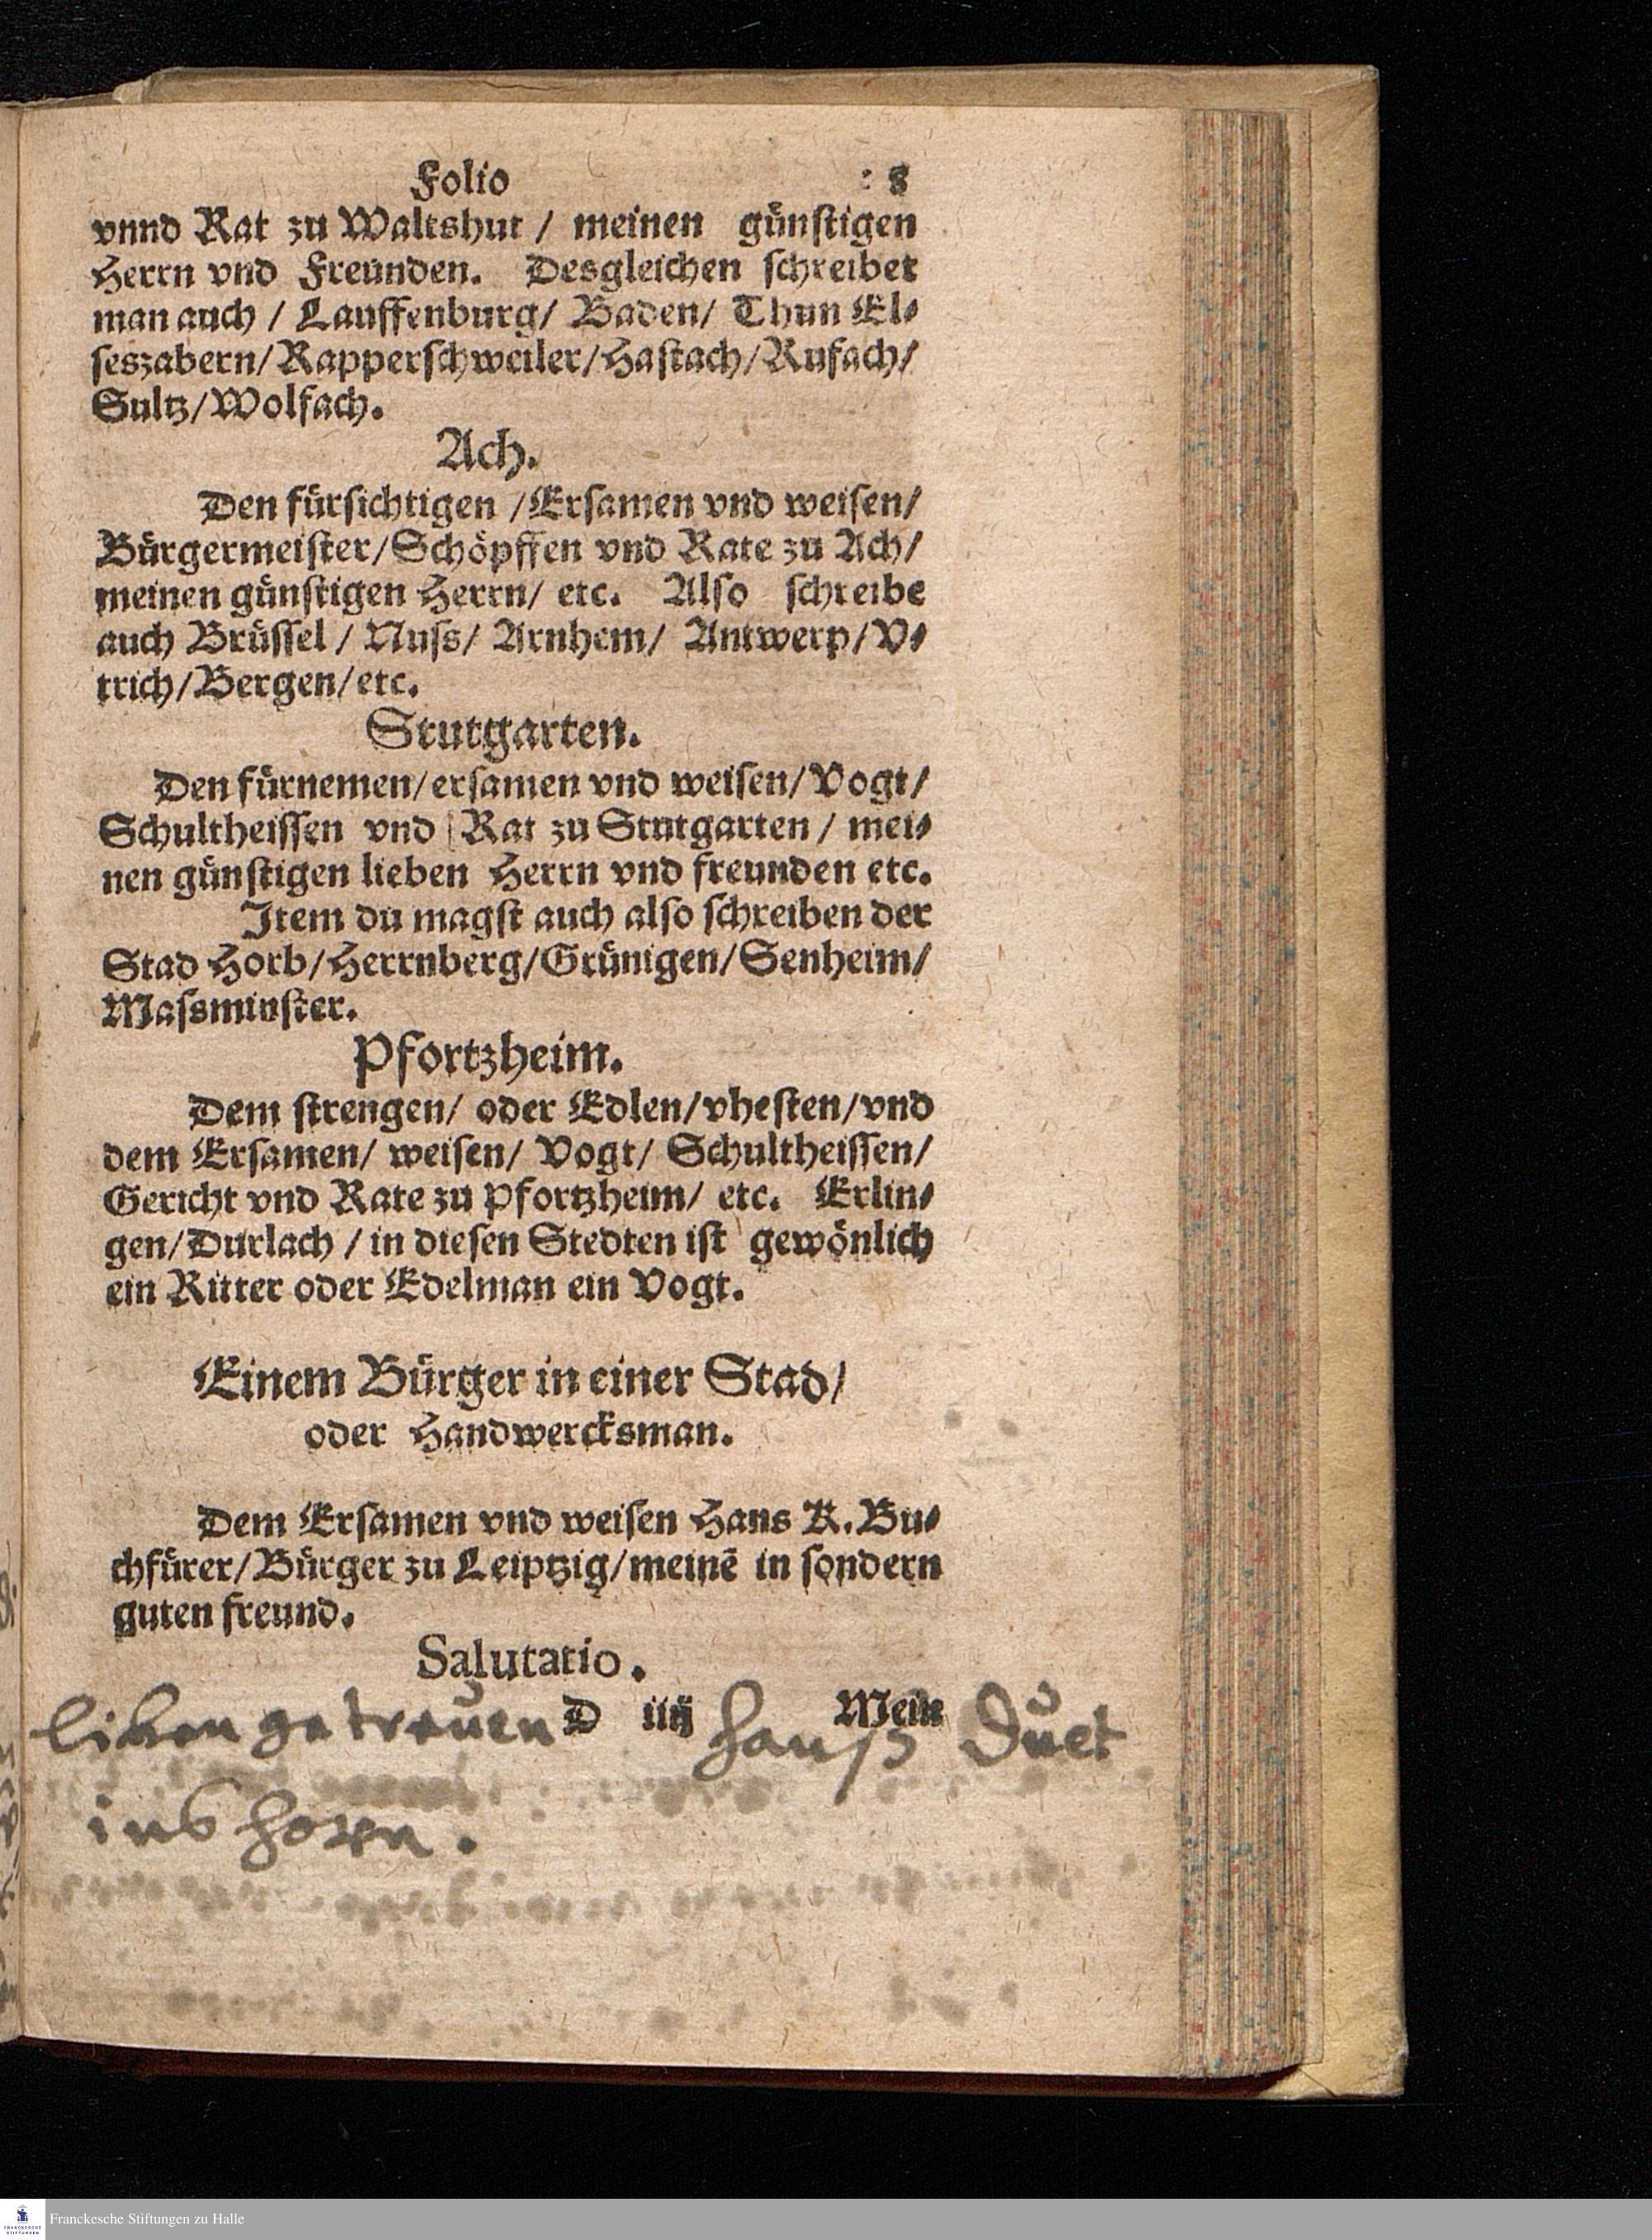 Folio : 8
vnnd Rat zu Waltshut / meinen günſtigen
Herrn vnd Freunden. Desgleichen ſchreibet
man auch / Lauffenburg/ Baden/ Thun El⸗
ſeszabern/Rapperſchweiler/Haſtach/Rufach/
Sultz/Wolfach.
Ach.
Den fürſichtigen /Erſamen vnd weiſen/
Bürgermeiſter/Schöpffen vnd Rate zu Ach/
meinen günſtigen Herrn/ etc. Alſo ſchreibe
auch Brüſſel / Nuſs/ Arnhem/ Antwerp/V⸗
trich/Bergen/etc.
Stutgarten.
Den fürnemen/erſamen vnd weiſen/Vogt/
Schultheiſſen vnd Rat zu Stutgarten / mei⸗
nen günſtigen lieben Herrn vnd freunden etc.
Item du magſt auch alſo ſchreiben der
Stad Horb/Herrnberg/Grünigen/Senheim/
Maſsminſter.
Pfortzheim.
Dem ſtrengen/ oder Edlen/vheſten/vnd
dem Erſamen/ weiſen/ Vogt/ Schultheiſſen/
Gericht vnd Rate zu Pfortzheim/ etc. Erlin⸗
gen/Durlach / in dieſen Stedten iſt gewönlich
ein Ritter oder Edelman ein Vogt.
Einem Bürger in einer Stad/
oder Handwercksman.
Dem Erſamen vnd weiſen Hans K. Bu⸗
chfürer/Bürger zu Leiptzig/meinē in ſondern
guten freund.
Salutatio.
D iiij Mein
liben getreuen Hanß Duet
ins horn.
Franckesche Stiftungen zu Halle
FRANCKESCHE
STIFTUNGEN